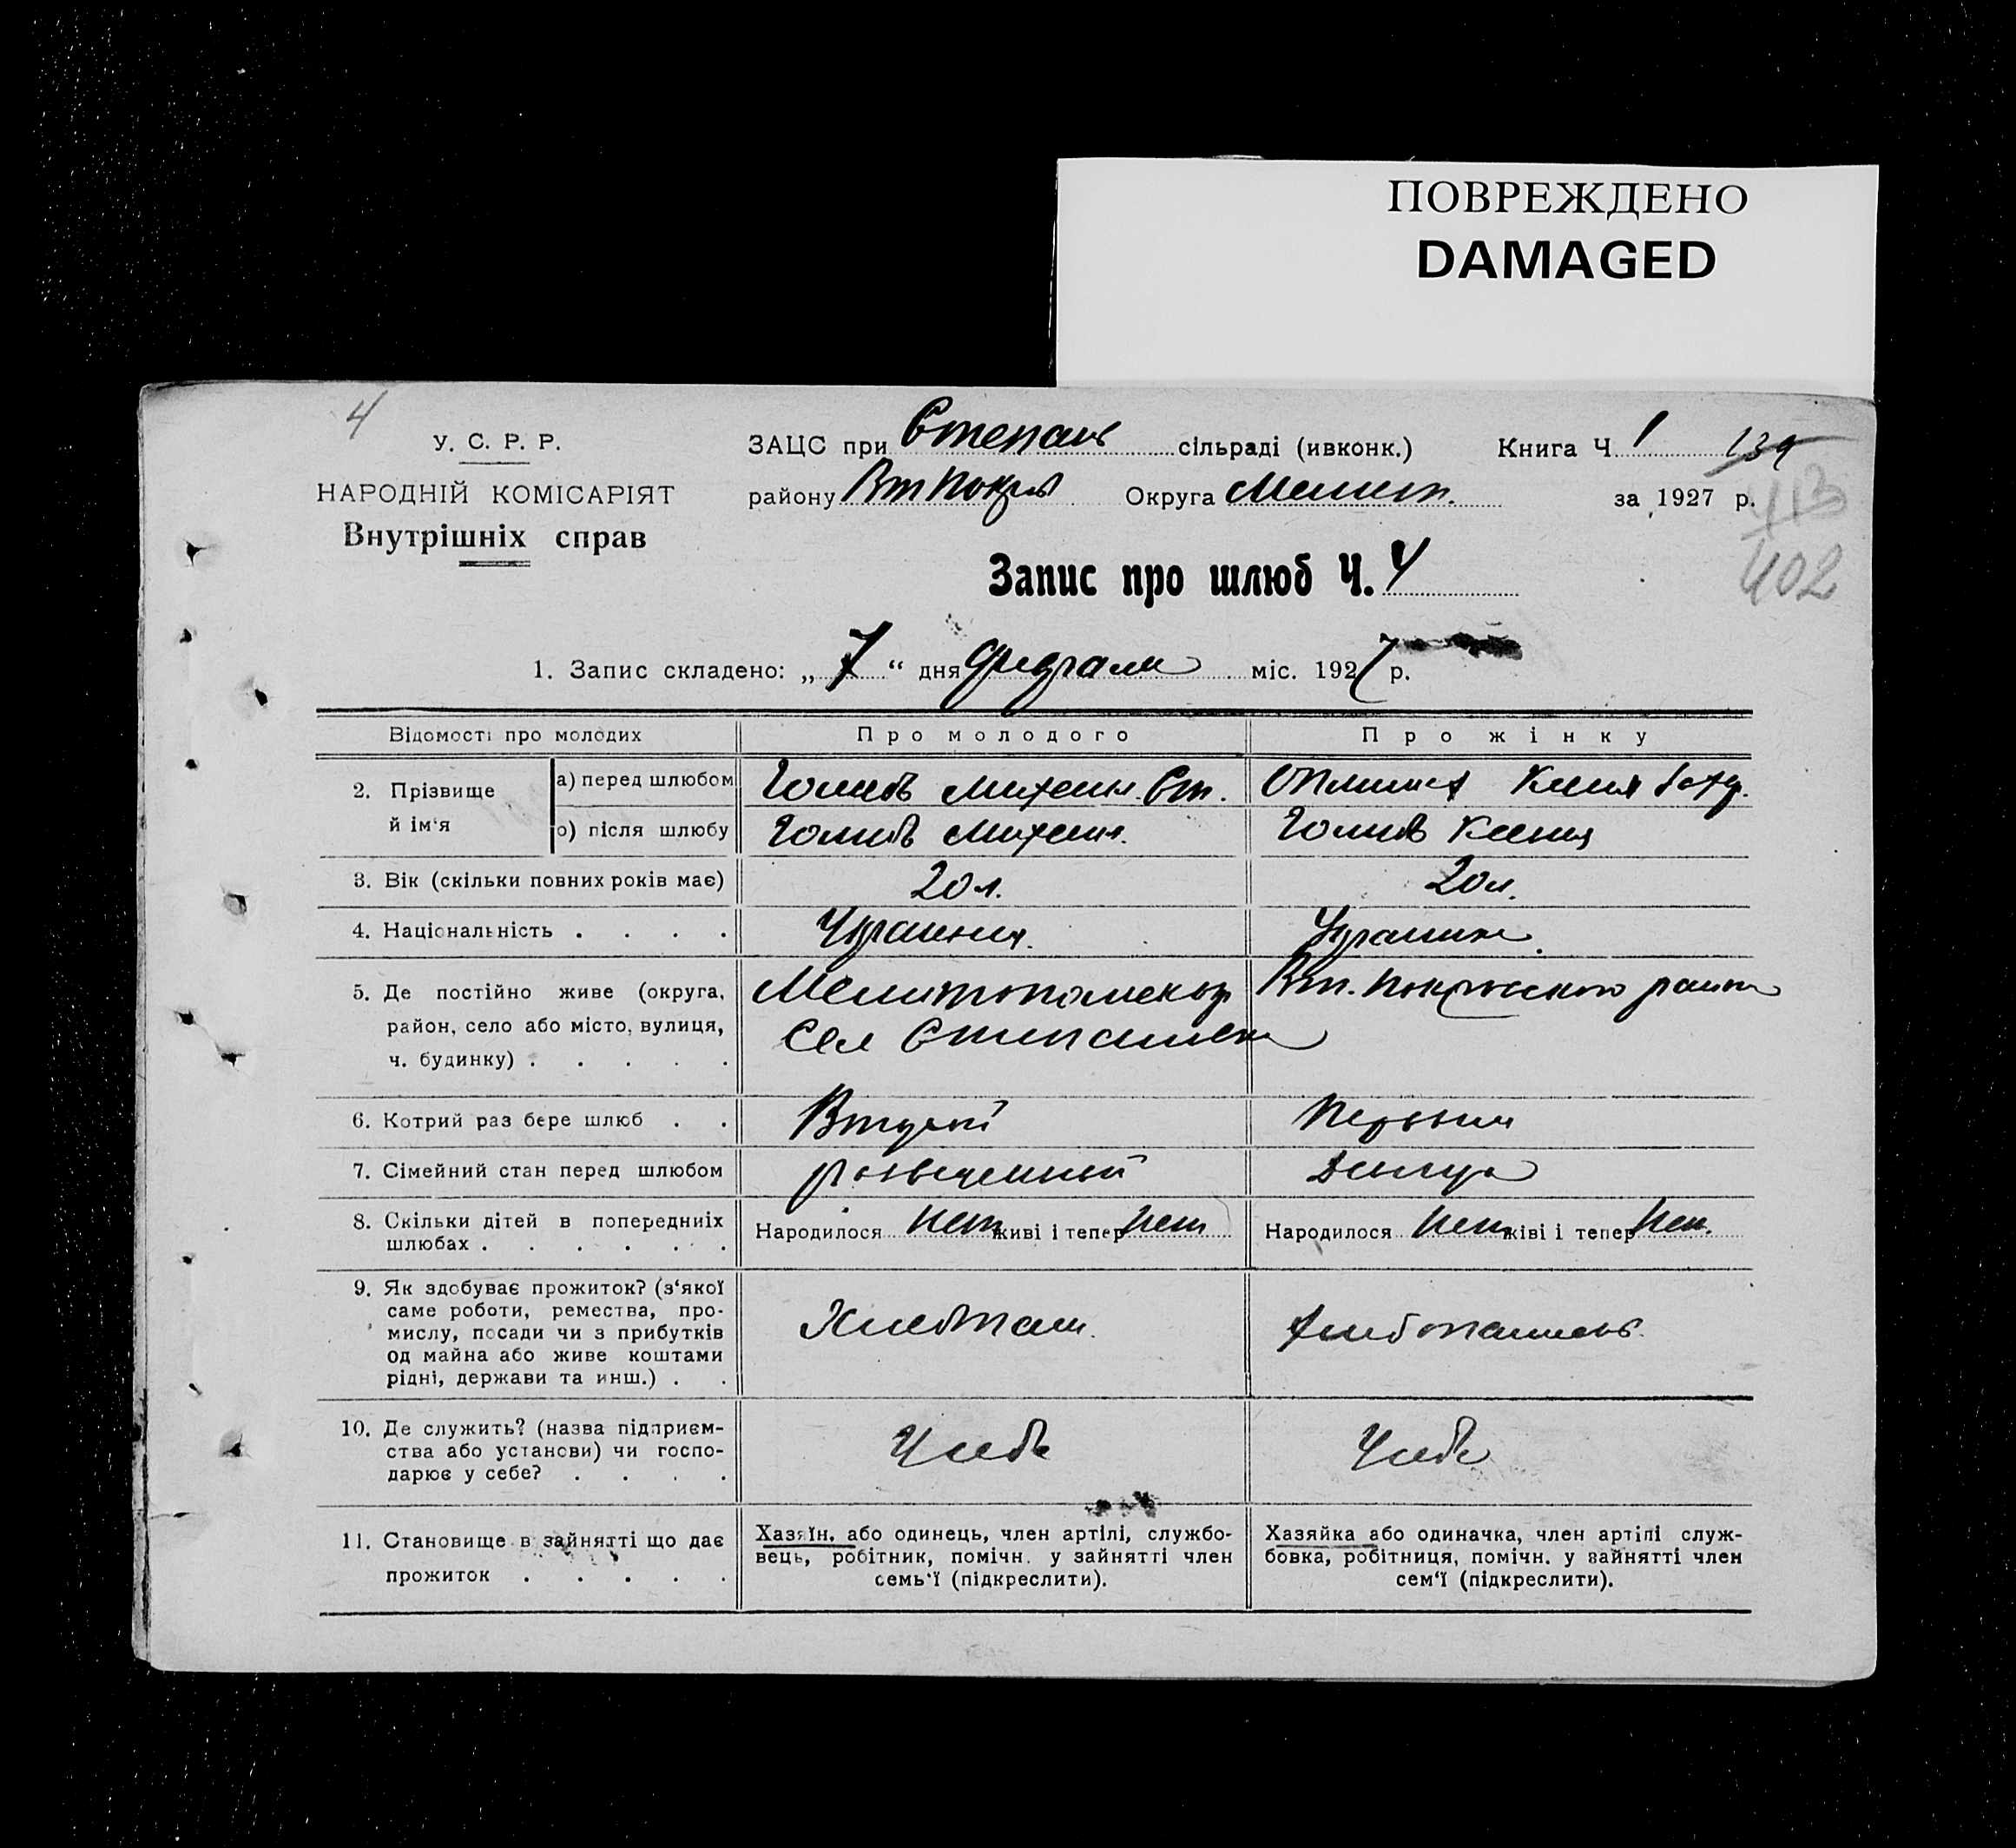 ПОВРЕЖДЕНО
DAMAGED
4
У. С. Р. Р.
НАРОДНІЙ КОМІСАРІЯТ
Внутрішніх справ
ЗАЦС при Степан сільраді (ивконк.) Книга Ч. 1 139
району Вт Покр Округа Мелит. за 1927 р.
413
402
Запис про шлюб Ч. 4
1. Запис складено: „ 7 “ дня февраля міс. 1927 р.
Відомості про молодих Про молодого Про жінку
2. Прізвище й ім‘я
а) перед шлюбом Михаил Ст. Ксения
о) після шлюбу Михаил. Ксения
3. Вік (скільки повних років має) 20 л. 20 л.
4. Національність . . . . Украинец. Украинка.
5. Де постійно живе (округа, Вт. Покровского района
район, село або місто, вулиця, Сел
ч. будинку) . . . . .
6. Котрий раз бере шлюб . . Второй Первый
7. Сімейний стан перед шлюбом разведенный Девица
8. Скільки дітей в попередниіх
шлюбах . . . . . .
Народилося нет живі і тепер нет
Народилося нет жіві і тепер нет.
9. Як здобуває прожиток? (з‘якої
саме роботи, ремества, про-
мислу, посади чи з прибутків
од майна або живе коштами
рідні, держави та инш.) . .
Хлебпаш.
10. Де служить? (назва підприєм-
ства або установи) чи госпо-
дарює у себе? . . . .
У себе У себе
11. Становище в зайнятті що дає
прожиток . . . . .
Хазяїн, або одинець, член артілі, службо-
вець, робітник, помічн. у зайнятті член
семь‘ї (підкреслити).
Хазяйка або одиначка, член артілі служ-
бовка, робітниця, помічн. у зайнятті член
сем‘ї (підкреслити).